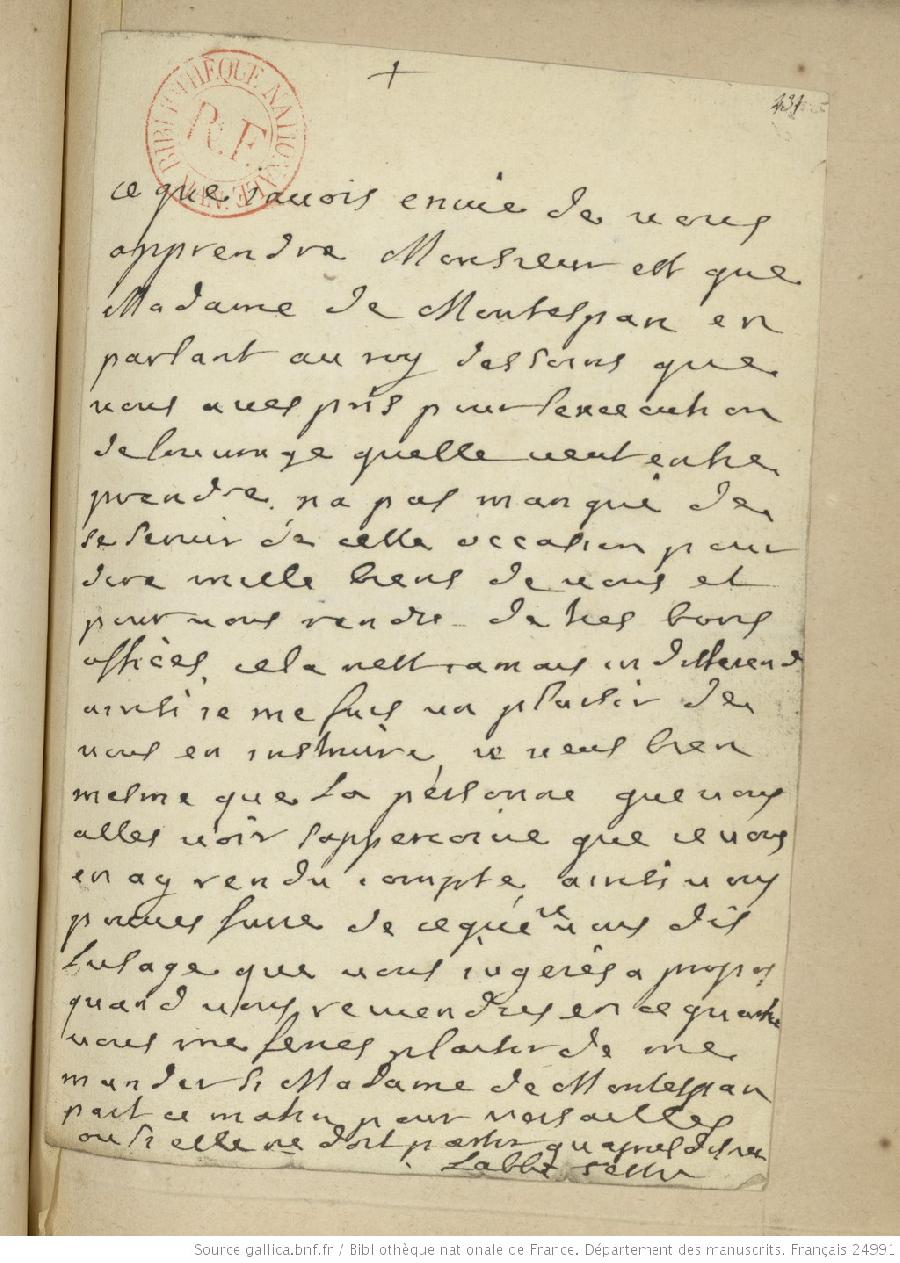 +
231
BIBLIOTHÈQUE NATIONALE
R.F.
MANUSCRITS
ce que iauois enuie de uous
apprendre Monsieur est que
Madame de Montespan en
parlant au roy des soins que
uous aues pris pour lexecution
de louurage quelle ueut entre
prendre, na pas manqué de
se seruir de cette occasion pour
dire mille biens de uous et
pour uous rendre de tres bons
offices, cela nest iamais indifferend
ainsi ie me fais un plaisir de
uous en instruire, ie ueus bien
mesme que la personne que uous
alles uoir sappercoiue que ie uous
en ay rendu compte, ainsi uous
pouues faire de ce que ie uous dis
lusage que uous iugerés a propos
quand uous reuiendres en ce quartier
uous me feres plaisir de me
mander si Madame de Montespan
part ce matin pour uersailles
ou si elle ne doit partir quapres disner
Labbé Testu
Source gallica.bnf.fr / Bibliothèque nationale de France. Département des manuscrits. Français 24991